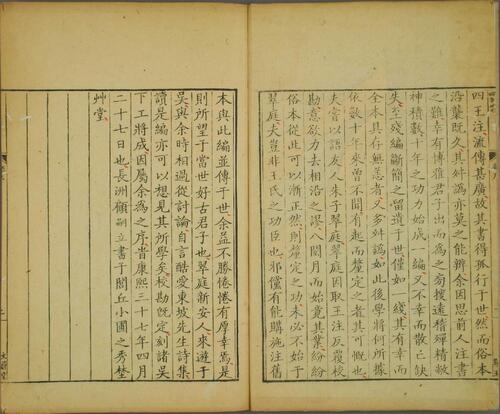 四王注流傳甚廣故其書得孤行于世然而俗本
沿襲既久其舛譌亦莫之能辨余因思前人注書
之難幸有博雅君子出而為之旁搜遠稽殫精敝
神積數十年之功力始成一編又不幸而散亡缺
失至殘編斷簡之留遺于世僅如一綫其有幸而
全本具存無恙者又多舛譌如此後學將何所據
依數十年來曾不聞有起而釐定之者其可慨也
夫嘗以語友人朱子翠庭翠庭因取王注反覆校
勘意欲力去相沿之謬八閱月而始竟其業紛紛
俗本從此可以漸正然則釐定之功未必不始于
翠庭夫豈非王氏之功臣也邪儻有能購施注舊
本與此編並傳于世余益不勝惓惓有厚幸焉是
則所望于當世好古君子也翠庭新安人來遊于
吳與余時相過從討論自言酷愛東坡先生詩集
讀是編亦可以想見其所學矣校勘既定刻諸吳
下工將成因屬余為之序皆康熙三十七年四月
二十七日也長洲顧嗣立書于閭丘小圃之秀埜
艸堂